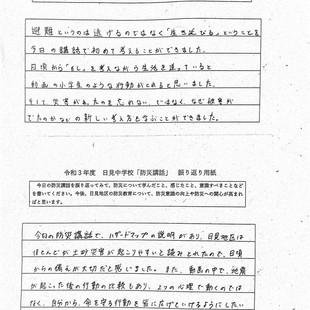 避難というのは逃げるのではなく「生き延びる」ということを
今日の講話で初めて考えることができました。
日頃から「もし」を考えながら生活を送っていると
動画の小学生のような行動がとれると思いました。
そして災害があったのを忘れない、ではなく、なぜ被害が
でたのかなどの新しい考え方も学ぶことができました。
令和3年度 日見中学校「防災講話」 振り返り用紙
今日の防災講話を振り返ってみて、防災について学んだこと、感じたこと、意識すべきことなど
を書いてください。今後、日見地区の防災教育について、防災意識の向上や防災への関心が高まれ
ばと思います。
今日の防災講話で、ハザードマップの説明があり、日見地区は
ほとんどが土砂災害が起こりやすいと読みとれたので、日頃
からの備えが大切だと思いました。また、動画の中で、地震
が起こった後の行動の比較もあり、2つの心理で動くのでは
なく、自分から、命を守る行動を常に広げていけるようにしたい